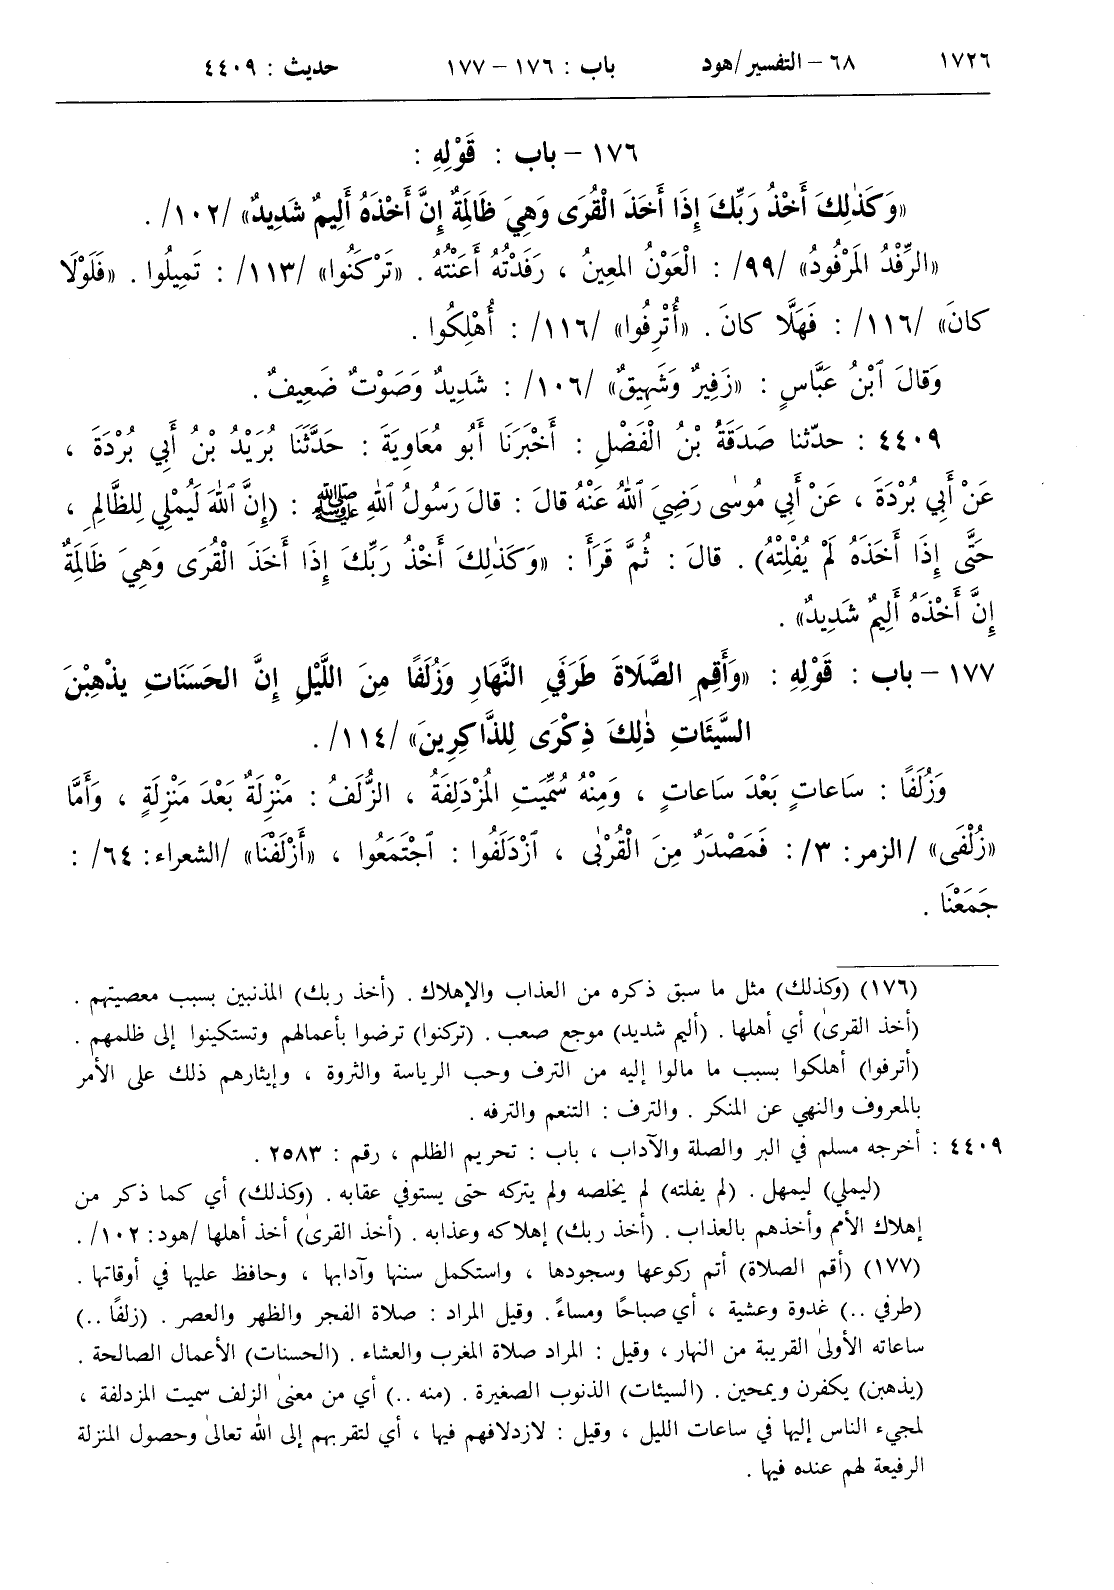 ١٧٢٦ ٦٨ – التفسير/هود باب : ١٧٦ – ١٧٧ حديث : ٤٤٠٩
١٧٦ – باب : قَوْلِهِ :
«وَكَذٰلِكَ أَخْذُ رَبِّكَ إِذَا أَخَذَ الْقُرَى وَهِيَ ظَالِمَةٌ إِنَّ أَخْذَهُ أَلِيمٌ شَدِيدٌ» /١٠٢/ .
«الرِّفْدُ المَرْفُودُ» /٩٩/ : الْعَوْنُ المعِينُ ، رَفَدْتُهُ أَعَنْتُهُ . «تَرْكَنُوا» /١١٣/ : تَمِيلُوا . «فَلَوْلَا
كانَ» /١١٦/ : فَهَلَّا كانَ . «أُتْرِفُوا» /١١٦/ : أُهْلِكُوا .
وَقالَ ٱبْنُ عَبَّاسٍ : «زَفِيرٌ وَشَهِيقٌ» /١٠٦/ : شَدِيدٌ وَصَوْتٌ ضَعِيفٌ .
٤٤٠٩ : حدّثنا صَدَقَةُ بْنُ الْفَضْلِ : أَخْبَرَنَا أَبُو مُعَاوِيَةَ : حَدَّثَنَا بُرَيْدُ بْنُ أَبِي بُرْدَةَ ،
عَنْ أَبِي بُرْدَةَ ، عَنْ أَبِي مُوسٰى رَضِيَ ٱللهُ عَنْهُ قالَ : قالَ رَسُولُ ٱللهِ ﷺ : (إِنَّ ٱللهَ لَيُمْلِي لِلظَّالِمِ ،
حَتَّى إِذَا أَخَذَهُ لَمْ يُفْلِتْهُ) . قالَ : ثُمَّ قَرَأَ : «وَكَذٰلِكَ أَخْذُ رَبِّكَ إِذَا أَخَذَ الْقُرَى وَهِيَ ظَالِمَةٌ
إِنَّ أَخْذَهُ أَلِيمٌ شَدِيدٌ» .
١٧٧ – باب : قَوْلِهِ : «وَأَقِمِ الصَّلَاةَ طَرَفَيِ النَّهَارِ وَزُلَفًا مِنَ اللَّيْلِ إِنَّ الحَسَنَاتِ يذْهِبْنَ
السَّيِّئَاتِ ذٰلِكَ ذِكْرَى لِلذَّاكِرِينَ» /١١٤/ .
وَزُلَفًا : سَاعاتٍ بَعْدَ سَاعاتٍ ، وَمِنْهُ سُمِّيَتِ المُزْدَلِفَةُ ، الزُّلَفُ : مَنْزِلَةٌ بَعْدَ مَنْزِلَةٍ ، وَأَمَّا
«زُلْفَى» /الزمر: ٣/ : فَمَصْدَرٌ مِنَ الْقُرْبٰى ، ٱزْدَلَفُوا : ٱجْتَمَعُوا ، «أَزْلَفْنَا» /الشعراء: ٦٤/ :
جَمَعْنَا .
(١٧٦) (وكذلك) مثل ما سبق ذكره من العذاب والإهلاك . (أخذ ربك) المذنبين بسبب معصيتهم .
(أخذ القرىٰ) أي أهلها . (أليم شديد) موجع صعب . (تركنوا) ترضوا بأعمالهم وتستكينوا إلى ظلمهم .
(أترفوا) أهلكوا بسبب ما مالوا إليه من الترف وحب الرياسة والثروة ، وإيثارهم ذلك على الأمر
بالمعروف والنهي عن المنكر . والترف : التنعم والترفه .
٤٤٠٩ : أخرجه مسلم في البر والصلة والآداب ، باب : تحريم الظلم ، رقم : ٢٥٨٣ .
(ليملي) ليمهل . (لم يفلته) لم يخلصه ولم يتركه حتى يستوفي عقابه . (وكذلك) أي كما ذكر من
إهلاك الأمم وأخذهم بالعذاب . (أخذ ربك) إهلاكه وعذابه . (أخذ القرىٰ) أخذ أهلها /هود: ١٠٢/ .
(١٧٧) (أقم الصلاة) أتم ركوعها وسجودها ، واستكمل سننها وآدابها ، وحافظ عليها في أوقاتها .
(طرفي ..) غدوة وعشية ، أي صباحًا ومساءً . وقيل المراد : صلاة الفجر والظهر والعصر . (زلفًا ..)
ساعاته الأولىٰ القريبة من النهار ، وقيل : المراد صلاة المغرب والعشاء . (الحسنات) الأعمال الصالحة .
(يذهبن) يكفرن ويمحين . (السيئات) الذنوب الصغيرة . (منه ..) أي من معنىٰ الزلف سميت المزدلفة ،
لمجيء الناس إليها في ساعات الليل ، وقيل : لازدلافهم فيها ، أي لتقربهم إلى الله تعالىٰ وحصول المنزلة
الرفيعة لهم عنده فيها .